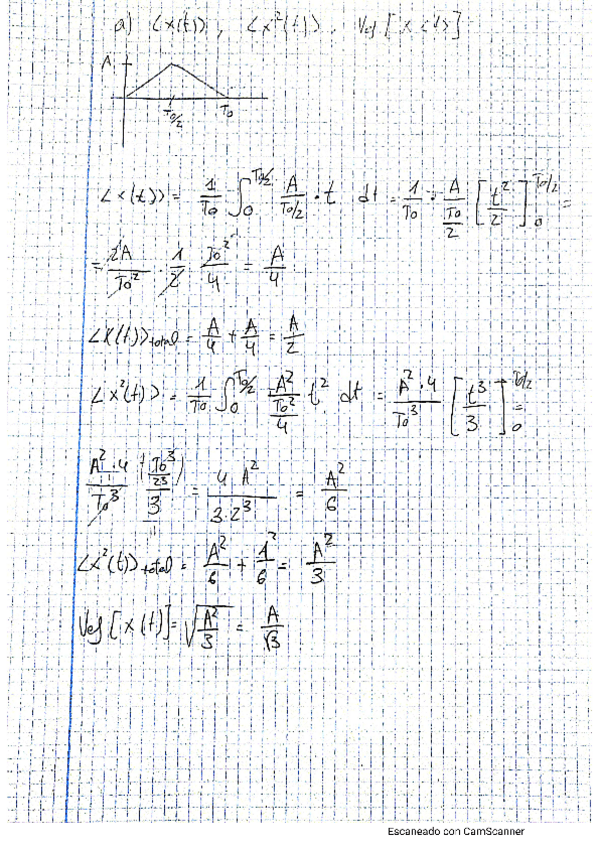 a) <x(t)>, <x²(t)>, Vef [x(t)]
A
T₀/2 T₀
<x(t)> = 1/T₀ ∫₀^(T₀/2) A/(T₀/2) · t dt = 1/T₀ · A/(T₀/2) [t²/2]₀^(T₀/2) =
= 2A/T₀² · 1/2 · T₀²/4 = A/4
<x(t)>total = A/4 + A/4 = A/2
<x²(t)> = 1/T₀ ∫₀^(T₀/2) A²/(T₀²/4) t² dt = A²·4/T₀³ [t³/3]₀^(T₀/2) =
A²·4/T₀³ ((T₀³/2³)/3) = 4 A²/(3·2³) = A²/6
<x²(t)>total = A²/6 + A²/6 = A²/3
Vef [x(t)] = √(A²/3) = A/√3
Escaneado con CamScanner